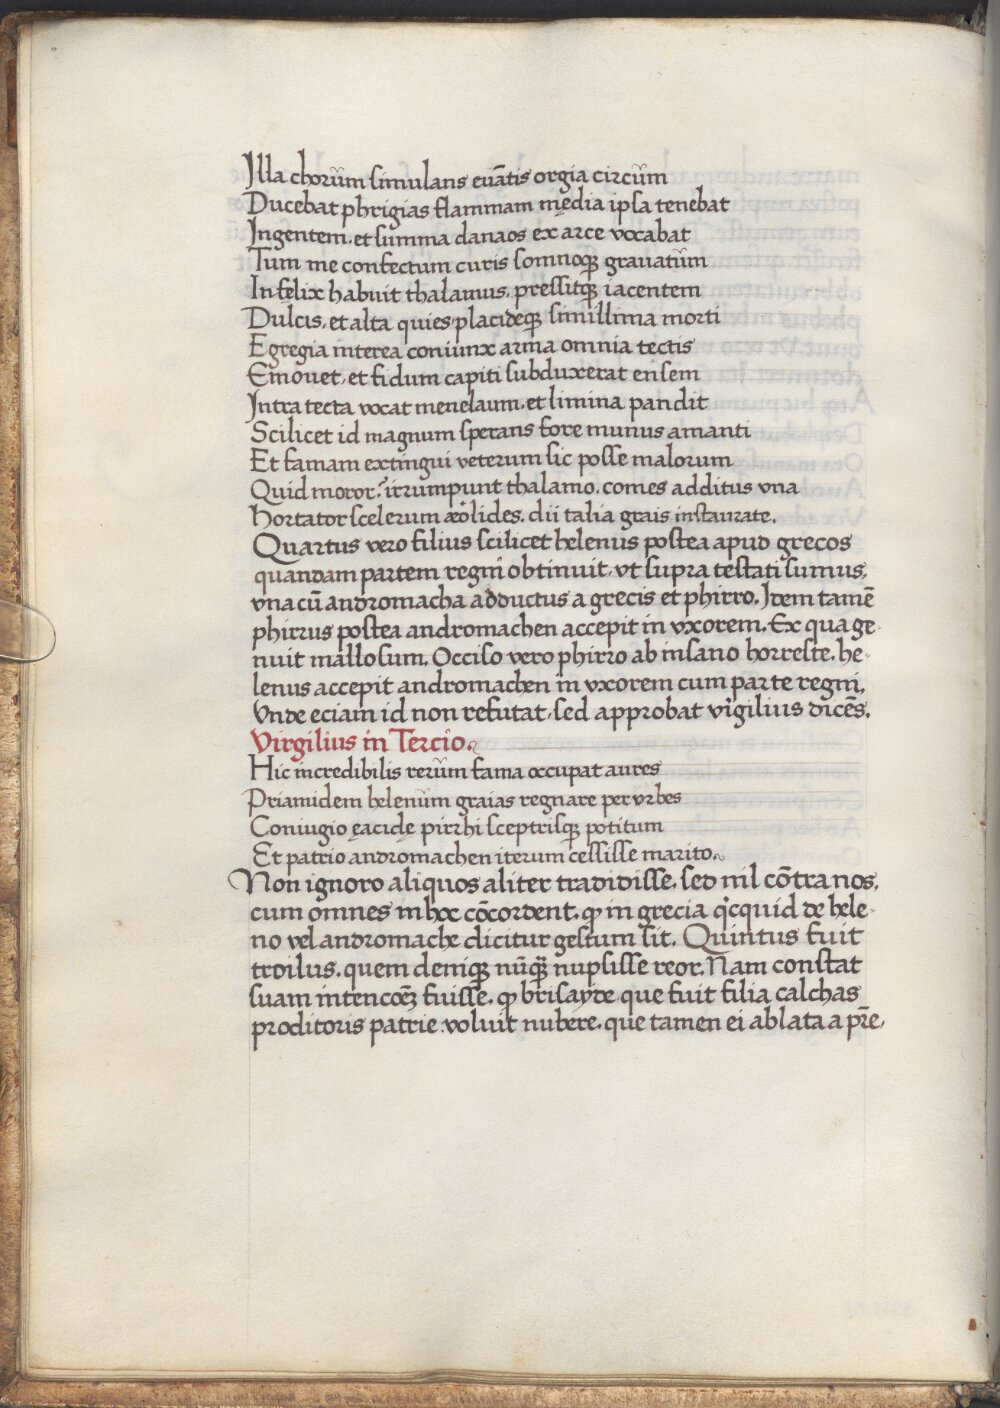 Illa chorūm simulans euātis orgia circūm
Ducebat phrigias flammam mędia ipsa tenebat
Ingentem. et summa danaos ex arce vocabat
Tum me confectum curis somnoqꝫ grauatūm
Infelix habuit thalamus. pressitqꝫ iacentem
Dulcis. et alta quies placideqꝫ simillima morti
Egregia interea coniunx arma omnia tectis
Emouet. et fidum capiti subduxerat ensem
Intra tecta vocat menelaum. et limina pandit
Scilicet id magnum sperans fore munus amanti
Et famam extingui veterum sic posse malorum
Quid moror? irrumpunt thalamo. comes additus vna
Hortator scelerum æolides. dii talia grais instaurate.
Quartus vero filius scilicet helenus postea apud grecos
quandam partem regni obtinuit. vt supra testati sumus.
vna cū andromacha adductus a grecis et phirro. Idem tamē
phirrus postea andromachen accepit in vxorem. Ex qua ge-
nuit mallosum. Occiso vero phirro ab insano horreste. he-
lenus accepit andromachen in vxorem cum parte regni.
Vnde eciam id non refutat. sed approbat virgilius dicēs.
Virgilius in Tercio.
Hic incredibilis rerūm fama occupat aures
Priamidem helenūm graias regnare per vrbes
Coniugio ęacidę pirrhi sceptrisqꝫ potitum
Et patrio andromachen iterum cessisse marito.
Non ignoro aliquos aliter tradidisse. sed nil cōtra nos.
cum omnes in hoc cōcordent. ꝙ in grecia qicquid de hele-
no vel andromache dicitur gestum sit. Quintus fuit
troilus. quem deniqꝫ nūqꝫ nupsisse reor. Nam constat
suam intencōꝫ fuisse. ꝙ brisayde que fuit filia calchas
proditoris patrie voluit nubere. que tamen ei ablata a pr̄e.